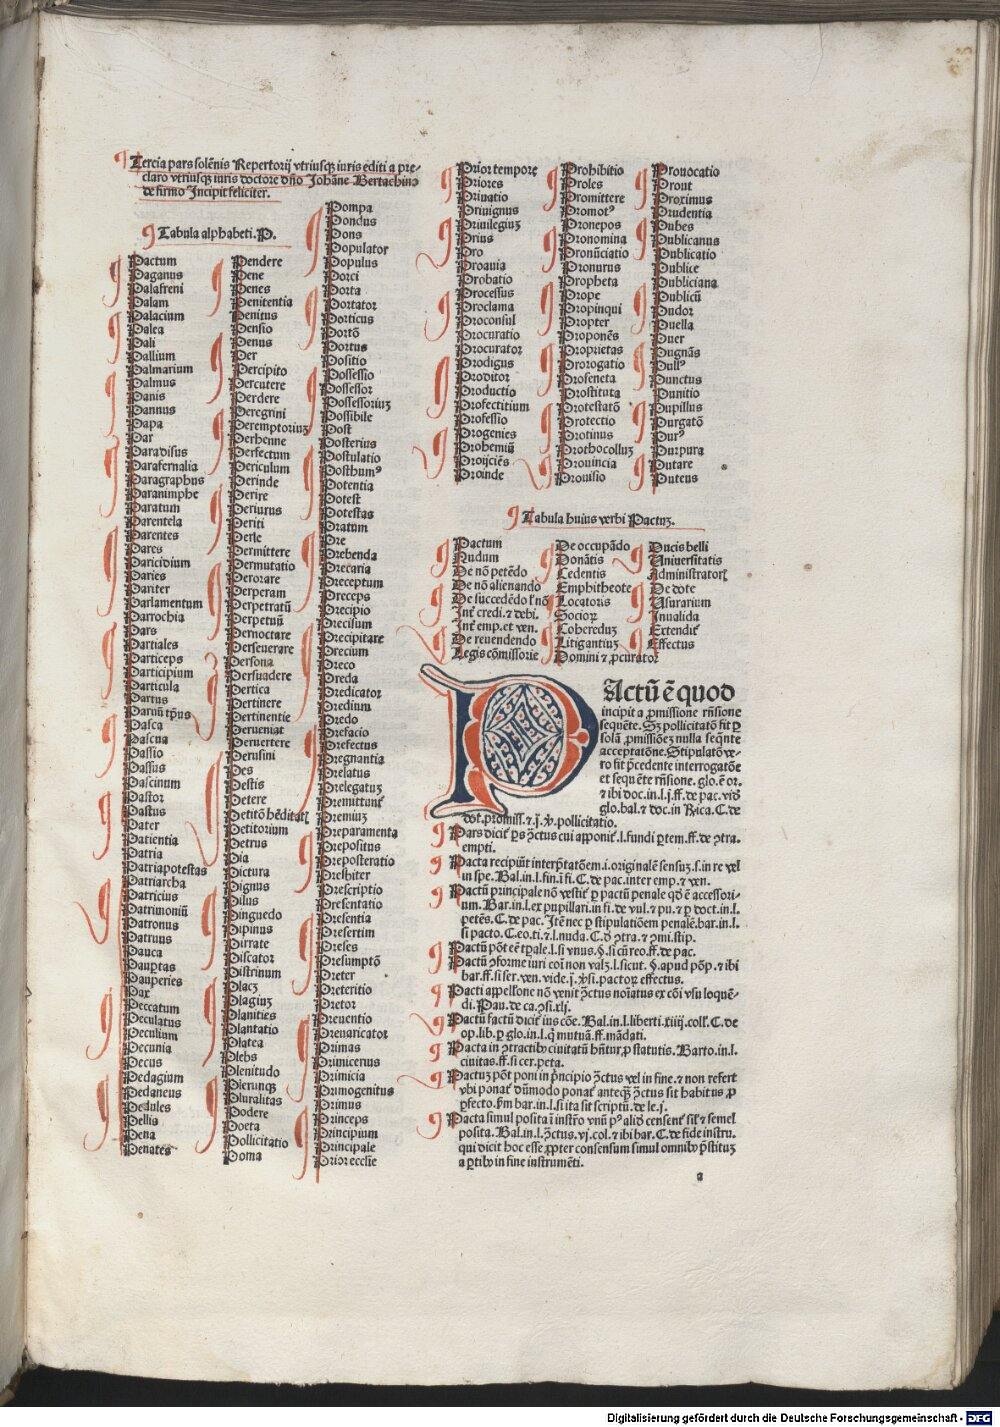 Tercia pars solēnis Repertorij vtriusqꝫ iuris editi a pre-
claro vtriusqꝫ iuris doctore dño Johāne Bertachino
de firmo Incipit feliciter.
Tabula alphabeti.P.
Pactum
Paganus
Palafreni
Palam
Palacium
Palea
Pali
Pallium
Palmarium
Palmus
Panis
Pannus
Papa
Par
Paradisus
Parafernalia
Paragraphus
Paranimphe
Paratum
Parentela
Parentes
Pares
Paricidium
Paries
Pariter
Parlamentum
Parrochia
Pars
Partiales
Particeps
Participium
Particula
Partus
Paruū tp̄us
Pasca
Pascua
Passio
Passus
Pascinum
Pastor
Pastus
Pater
Patientia
Patria
Patriapotestas
Patriarcha
Patricius
Patrimoniū
Patronus
Patruus
Pauca
Paup̱tas
Pauperies
Pax
Peccatum
Peculatus
Peculium
Pecunia
Pecus
Pedagium
Pedaneus
Pedules
Pellis
Pena
Penates
Pendere
Pene
Penes
Penitentia
Penitus
Pensio
Penus
Per
Percipito
Percutere
Perdere
Peregrini
Peremptoriuꝫ
Perhenne
Perfectum
Periculum
Perinde
Perire
Periurus
Periti
Perle
Permittere
Permutatio
Perorare
Perperam
Perpetratū
Perpetuū
Pernoctare
Perseuerare
Persona
Persuadere
Pertica
Pertinere
Pertinentie
Perueniat
Peruertere
Perusini
Pes
Pestis
Petere
Petitō hēditatꝭ
Petitorium
Petrus
Pia
Pictura
Pignus
Pilus
Pinguedo
Pipinus
Pirrate
Piscator
Pistrinum
Placꝫ
Plagiuꝫ
Planities
Plantatio
Platea
Plebs
Plenitudo
Plerunqꝫ
Pluralitas
Podere
Poeta
Pollicitatio
Poma
Pompa
Pondus
Pons
Populator
Populus
Porci
Porta
Portator
Porticus
Portō
Portus
Positio
Possessio
Possessor
Possessoriuꝫ
Possibile
Post
Posterius
Postulatio
Posthumꝰ
Potentia
Potest
Potestas
Pratum
Pre
Prebenda
Precaria
Preceptum
Preceps
Precipio
Precisum
Precipitare
Precium
Preco
Preda
Predicator
Predium
Predo
Prefacio
Prefectus
Pregnantia
Prelatus
Prelegatuꝫ
Premittunt᷑
Premiuꝫ
Preparamenta
Prepositus
Preposteratio
Presbiter
Prescriptio
Presentatio
Presentia
Presertim
Preses
Presumptō
Preter
Preteritio
Pretor
Preuentio
Preuaricator
Primas
Primicerus
Primicia
Primogenitus
Primus
Princeps
Principium
Principale
Prior ecclīe
Prior tempore
Priores
Priuatio
Priuignus
Priuilegiuꝫ
Prius
Pro
Proauia
Probatio
Processus
Proclama
Proconsul
Procuratio
Procurator
Prodigus
Proditor
Productio
Profectitium
Professio
Progenies
Prohemiū
Proijciēs
Proinde
Prohibitio
Proles
Promittere
Promotꝰ
Pronepos
Pronomina
Pronūciatio
Pronurus
Propheta
Prope
Propinqui
Propter
Proponēs
Proprietas
Prorogatio
Proseneta
Prostituta
Protestatō
Protectio
Protinus
Prothocolluꝫ
Prouincia
Prouisio
Prouocatio
Prout
Proximus
Prudentia
Pubes
Publicanus
Publicatio
Publice
Publiciana
Publicū
Pudor
Puella
Puer
Pugnās
Pullꝰ
Punctus
Punitio
Pupillus
Purgatō
Purꝰ
Purpura
Putare
Puteus
Tabula huius verbi Pactuꝫ.
Pactum
Nudum
De nō petēdo
De nō alienando
De succedēdo ł nō
Int᷑ credi.⁊ debi.
Int᷑ emp.et ven.
De reuendendo
Legis cōmissorie
De occupādo
Donātis
Cedentis
Emphitheote
Locatoris
Socioꝝ
Cohereduꝫ
Litigantiuꝫ
Domini ⁊ ꝓcurator
Ducis belli
Uniuersitatis
Administratorꝭ
De dote
Usurarium
Inualida
Extendit᷑
Effectus
PActū ē quod
incipit a ꝓmissione rn̄sione
sequēte. Sꝫ pollicitatō fit ꝑ
solā ꝓmissiōeꝫ nulla seqn̄te
acceptatōne.Stipulatō ve-
ro fit p̄cedente interrogatōe
et sequēte rn̄sione. glo.ē or.
⁊ ibi doc.in.l.j.ff.de pac. vīꝺ
glo.bal.⁊ doc.in Rica.C.de
dot.promiss.⁊.j.ꝟ.pollicitatio.
Pars dicit᷑ ꝑs ꝯctus cui apponit᷑.l.fundi ꝑtem.ff.de ꝯtra.
empti.
Pacta recipiūt interp̄tatōem.i.originalē sensuꝫ.s.in re vel
in spe.Bal.in.l.fin.ī fi.C.de pac.inter emp.⁊ ven.
Pactū principale nō vestit᷑ ꝑ pactū penale qd̄ ē accessori-
um.Bar.in.l.ex pupillari.in fi.de vul.⁊ pu.⁊ ꝑ doct.in.l.
petēs.C.de pac.Itē nec ꝑ stipulatiōem penalē.bar.in.l.
si pacto.C.eo.ti.⁊.l.nuda.C.ꝺ ꝯtra.⁊ ꝯmi.stip.
Pactū pōt eē tp̄ale.l.si vnus.§.si cū reo.ff.de pac.
Pactū ꝯforme iuri cōi non valꝫ.l.sicut.§.apud pōp.⁊ ibi
bar.ff.si ser.ven.vide.j.ꝟ.si.pactoꝝ effectus.
Pacti appell̄one nō venit ꝯctus noīatus ex cōi vsu loquē-
di.Pau.de ca.ꝯsi.xlj.
Pactū factū dicit᷑ ius cōe.Bal.in.l.liberti.xiiij.coll̄.C.de
op.lib.ꝑ glo.in.l.q̄ mutuā.ff.mādati.
Pacta in ꝯtractibꝰ ciuitatū hn̄tur,ꝓ statutis.Barto.in.l.
ciuitas.ff.si cer.peta.
Pactuꝫ pōt poni in p̄ncipio ꝯctus vel in fine.⁊ non refert
vbi ponat᷑ dūmodo ponat᷑ anteqꝫ ꝯctus sit habitus ꝓ
ꝑfecto.ꝑm bar.in.l.si ita sit scriptū.de le.j.
Pacta simul posita ī instr̄o vnū pꝰ aliꝺ censent᷑ sil̄ ⁊ semel
posita.Bal.in.l.ꝯctus.vj.col.⁊ ibi bar.C.de fide instru.
qui dicit hoc esse ꝓpter consensum simul omnibꝰ p̄stituꝫ
a ꝑtibꝰ in fine instrumēti.
a
Digitalisierung gefördert durch die Deutsche Forschungsgemeinschaft - DFG